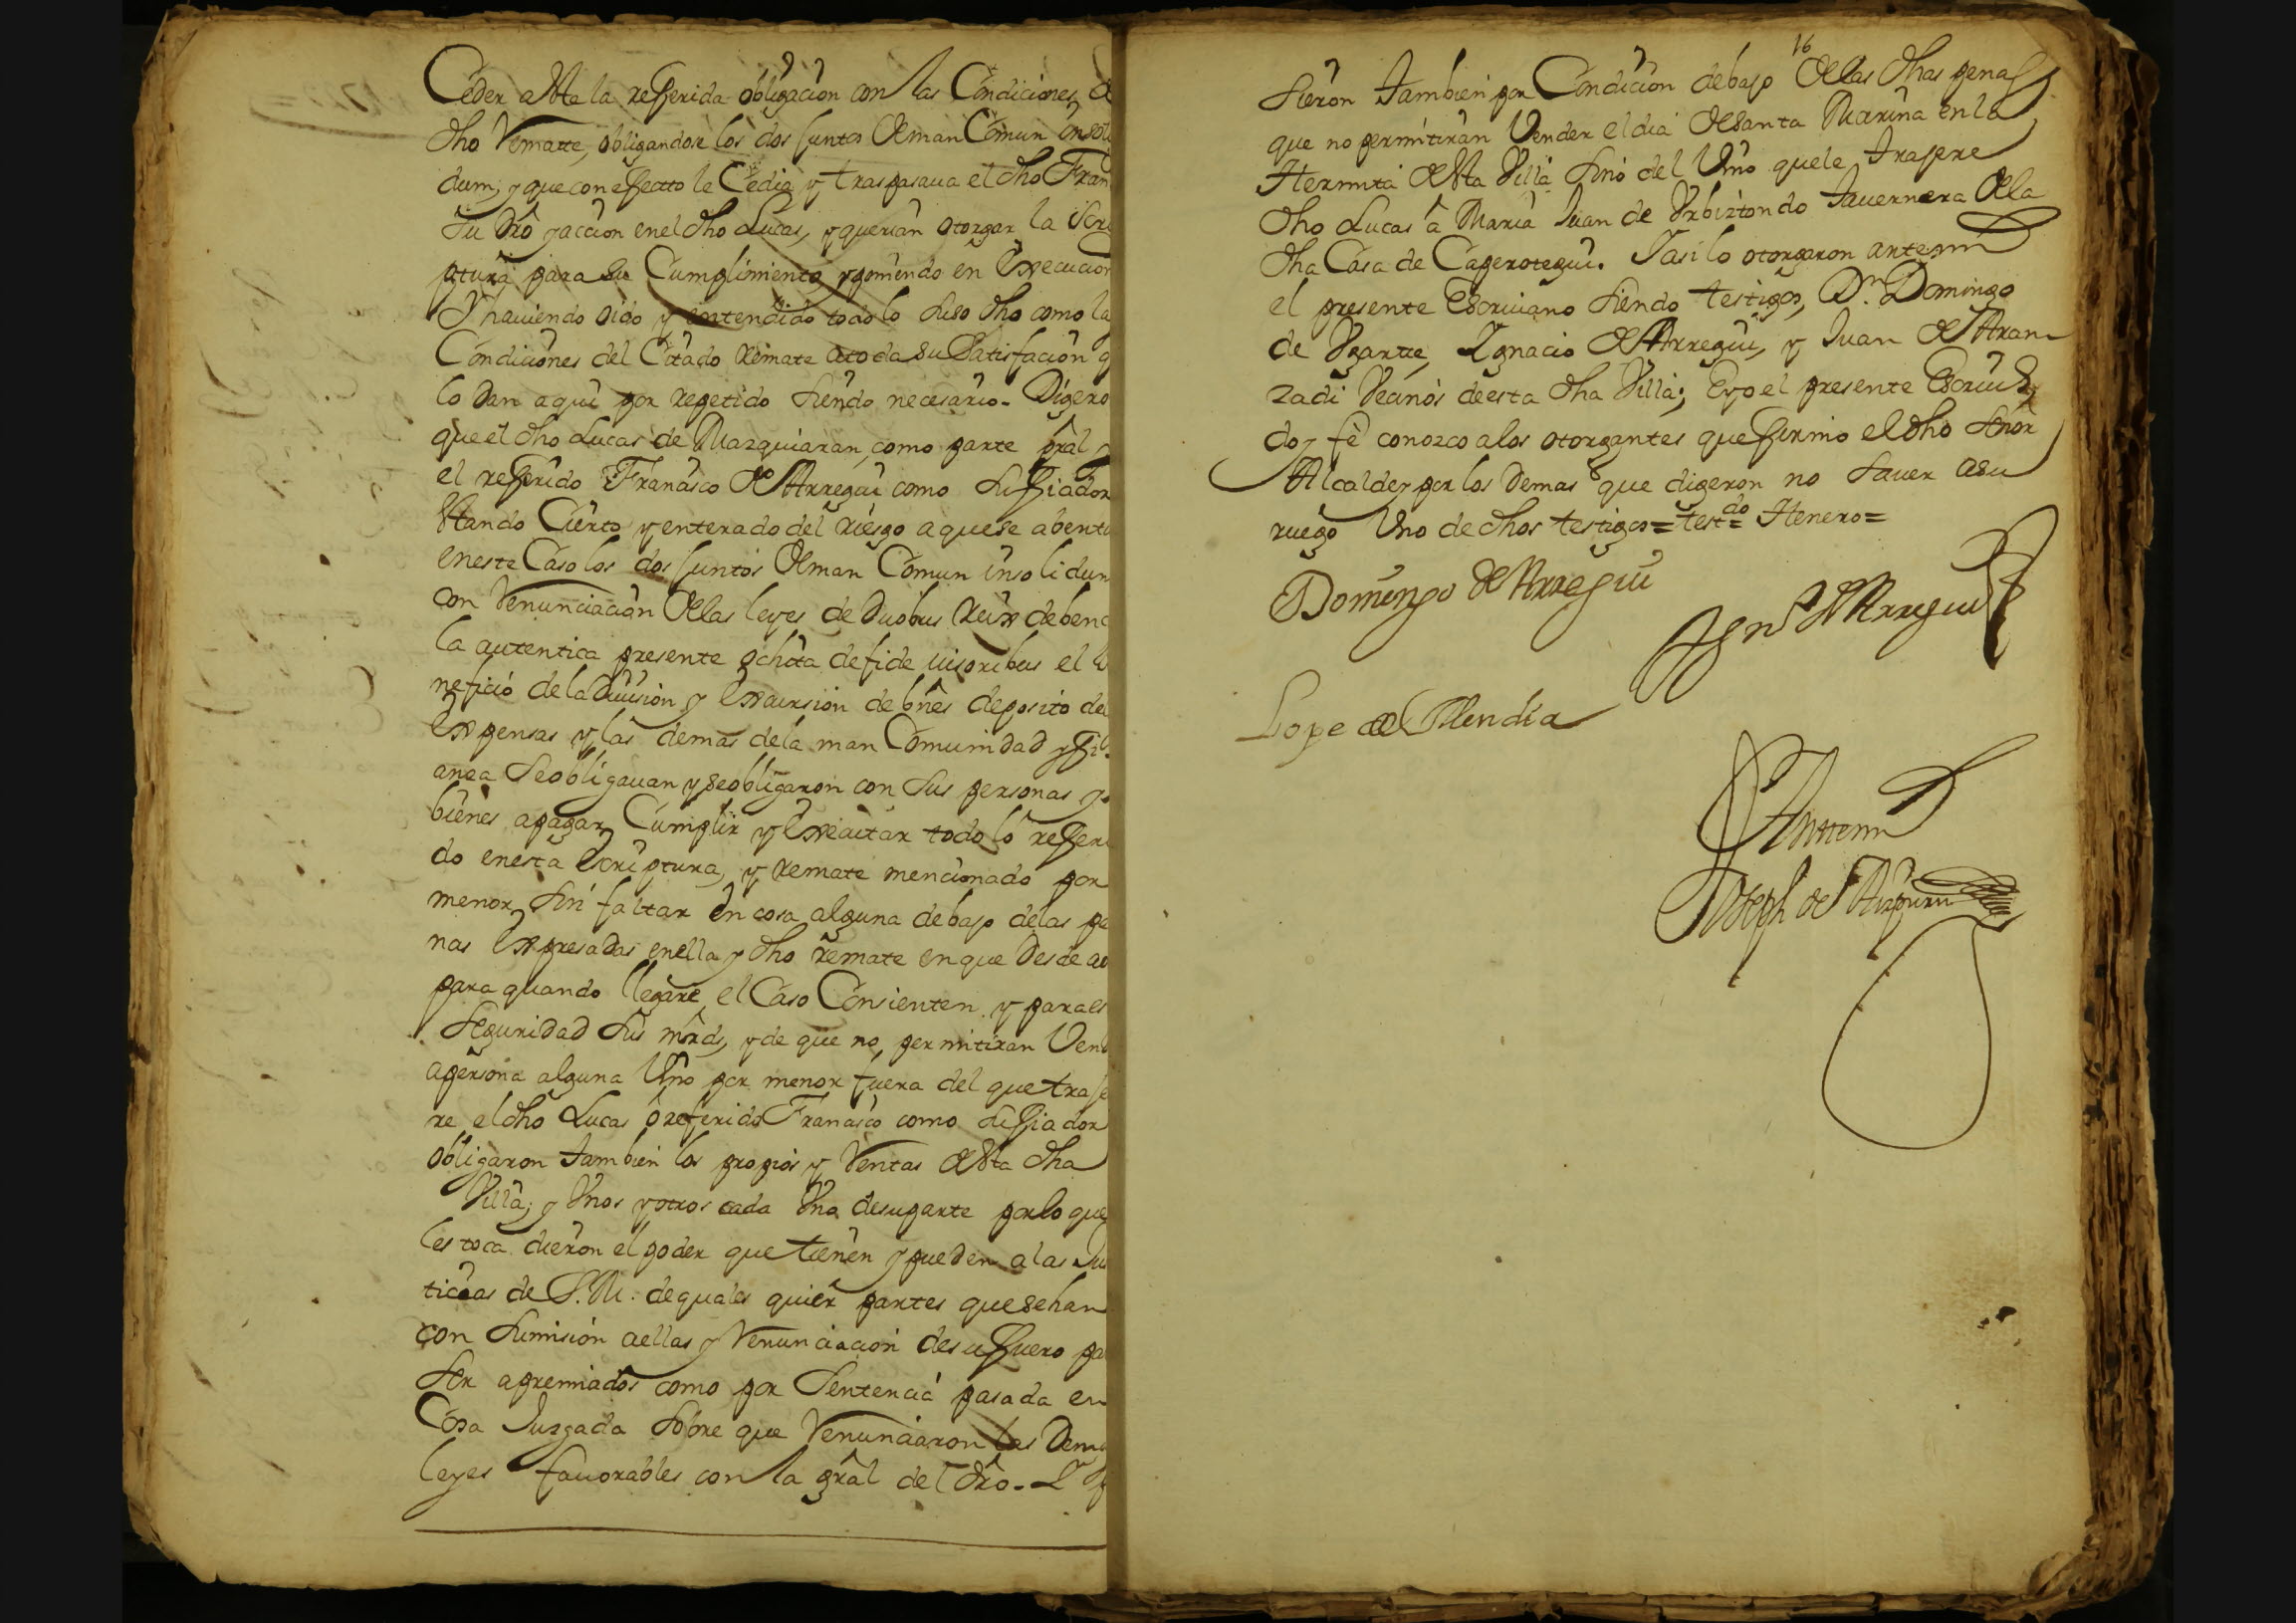 Ceder a esta la referida obligacion con las Condiciones de
dho Remate, obligandose los dos juntos de man Comun insoli
dum, y que con effecto le Cedia y traspasaua el dho Fran
su dro y accion en el dho Lucas, y querian otorgar la Scri
ptura para su Cumplimiento y poniendo en execucion
Y hauiendo oido y entendido todo lo suso dho como la
Condiciones del Citado Remate a toda su Satisfacion q
lo dan aqui por repetido siendo necesario. Digero
que el dho Lucas de Mazquiaran, como parte pral y
el referido Francisco de Arregui como su fiador
estando Cierto y enterado del riesgo a que se abentu
en este Caso los dos juntos de man Comun insolidun
con renunciacion de las leyes de duobus Reix debend
la autentica presente ochita de fide iusoribus el be
neficio de la Diuision y excursion de bnes deposito de
expensas y las demas de la man Comunidad y fi
anza se obligauan y se obligaron con sus personas y
bienes a pagar Cumplir y executar todo lo referi
do en esta escriptura, y remate mencionado por
menor sin faltar en cosa alguna debajo de las pe
nas expresadas en ella y dho remate en que desde ao
para quando llegare el Caso Consienten y para es
seguridad sus mrds, y de que no permitiran Vend
a persona alguna Uino por menor fuera del que traje
re el dho Lucas o referido Francisco como su fiador
obligaron tambien los propios y Rentas de esta dha
Villa; y Unos y otros cada Uno de su parte por lo que
les toca dieron el poder que tienen y pueden a las Jus
ticias de S.M. de quales quier partes que sehan
con sumision a ellas y renunciacion de su fuero pa
ser apremiados como por Sentencia pasada en
Cosa Juzgada sobre que renunciaron las Dema
leyes fauorables con la gral del dro. Y
16
sieron tambien por Condicion debajo de las dhas penas
que no permitiran Vender el dia de Santa Marina en la
Hermita de esta Villa sino del Uino que le trajere
dho Lucas a Maria Juan de Urbiztondo tauernera de la
dha Casa de Caperotegui. Y asi lo otorgaron ante mi
el presente Escriuano siendo testigos, Dn Domingo
de Ugarte, Ygnacio de Arregui, y Juan de Aran
zadi Vecinos de esta dha Villa; E yo el presente Escriu
doy fe conozco a los otorgantes que firmo el dho Señor
Alcalde y por los demas que digeron no sauer a su
ruego Uno de dhos testigos = testdo = Henero =
Domingo de Arregui
Ygno de Arregui
Lope de Mendia
Ante mi
Joseph de Aizpuru